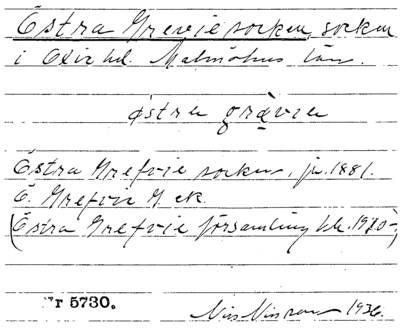 Östra Grevie socken, socken
i Oxie hd. Malmöhus län.
östra grävia
Östra Grefvie socken, jr. 1881.
Ö. Grefvie G. ek.
(Östra Grefvie församling kk. 1910-)
Nr 5730.
Nils Nilsson 1936.